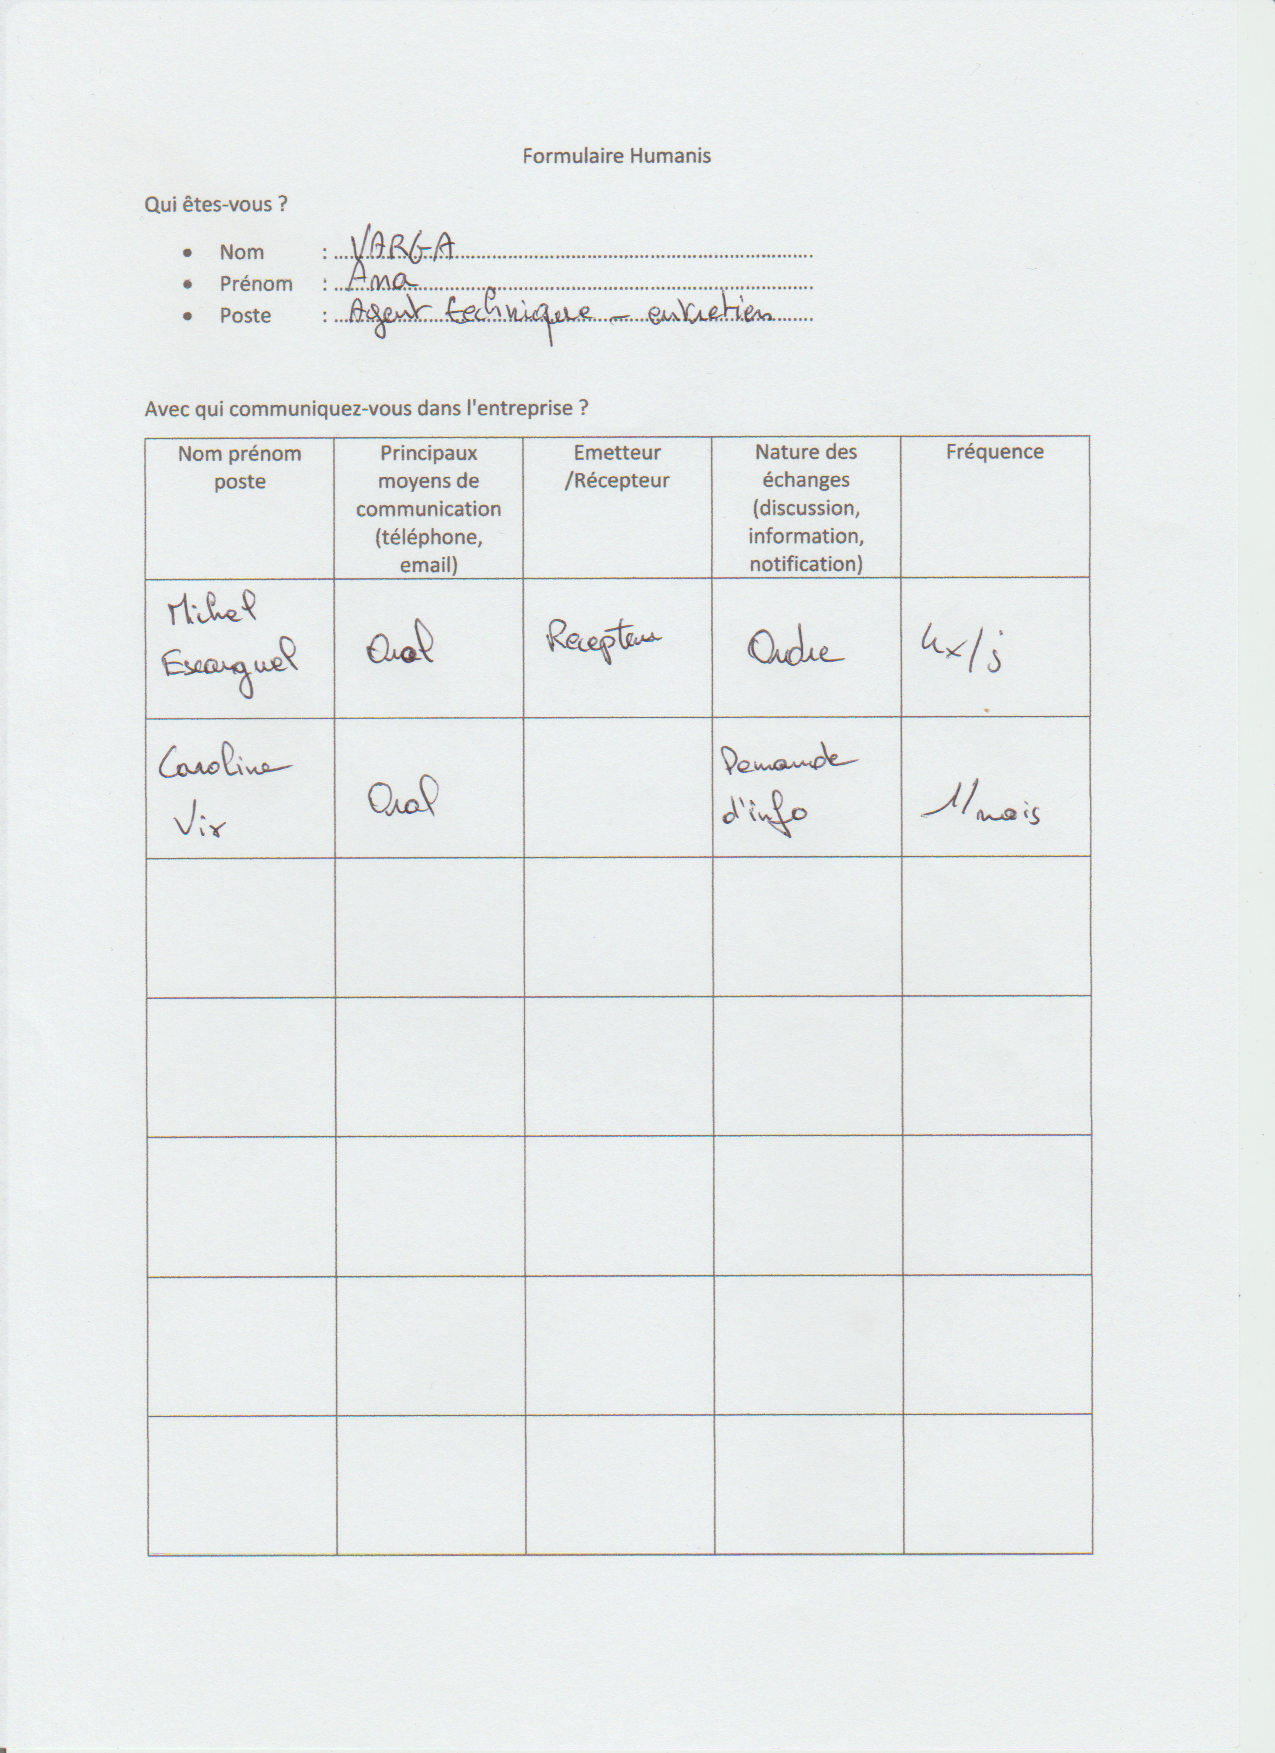 Formulaire Humanis
Qui êtes-vous ?
• Nom : VARGA
• Prénom : Ana
• Poste : Agent technique – entretien
Avec qui communiquez-vous dans l'entreprise ?
Nom prénom
poste
Principaux
moyens de
communication
(téléphone,
email)
Emetteur
/Récepteur
Nature des
échanges
(discussion,
information,
notification)
Fréquence
Michel
Escarguel
Oral
Recepteur
Ordre
4x/j
Caroline
Vix
Oral
Demande
d'info
1/mois